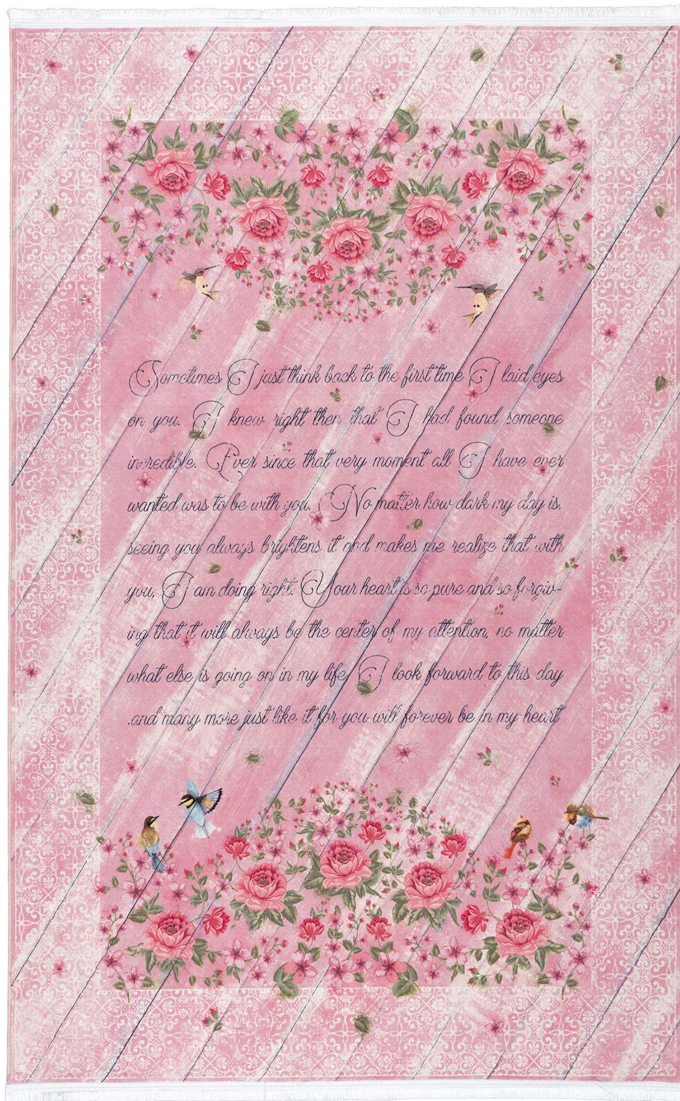 Sometimes I just think back to the first time I laid eyes
on you. I knew right then that I Had found someone
incredible. Ever since that very moment all I have ever
wanted was to be with you. No matter how dark my day is,
seeing you always brightens it and makes me realize that with
you, I am doing right. Your heart is so pure and so forgiv-
ing that it will always be the center of my attention, no matter
what else is going on in my life. I look forward to this day
.and many more just like it for you will forever be in my heart